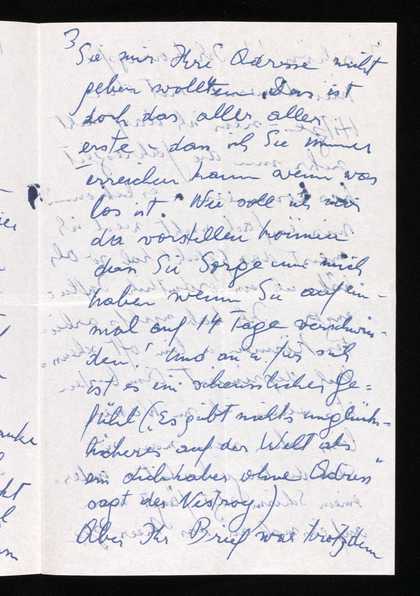 3
Sie mir Ihre Adresse nicht
geben wollten. Das ist
doch das aller aller
erste, dass ich Sie immer
erreichen kann wenn was
los ist. Wie soll ich mir
da vorstellen können
dass Sie Sorge um mich
haben wenn Sie auf ein-
mal auf 14 Tage verschwin-
den! Und an u. für sich
ist es ein scheusslicher Ge-
fühl (: Es gibt nichts unglück-
licheres auf der Welt als
ein Liebhaber ohne Adress"
sagt der Nestroy.)
Aber Ihr Brief war trotzdem